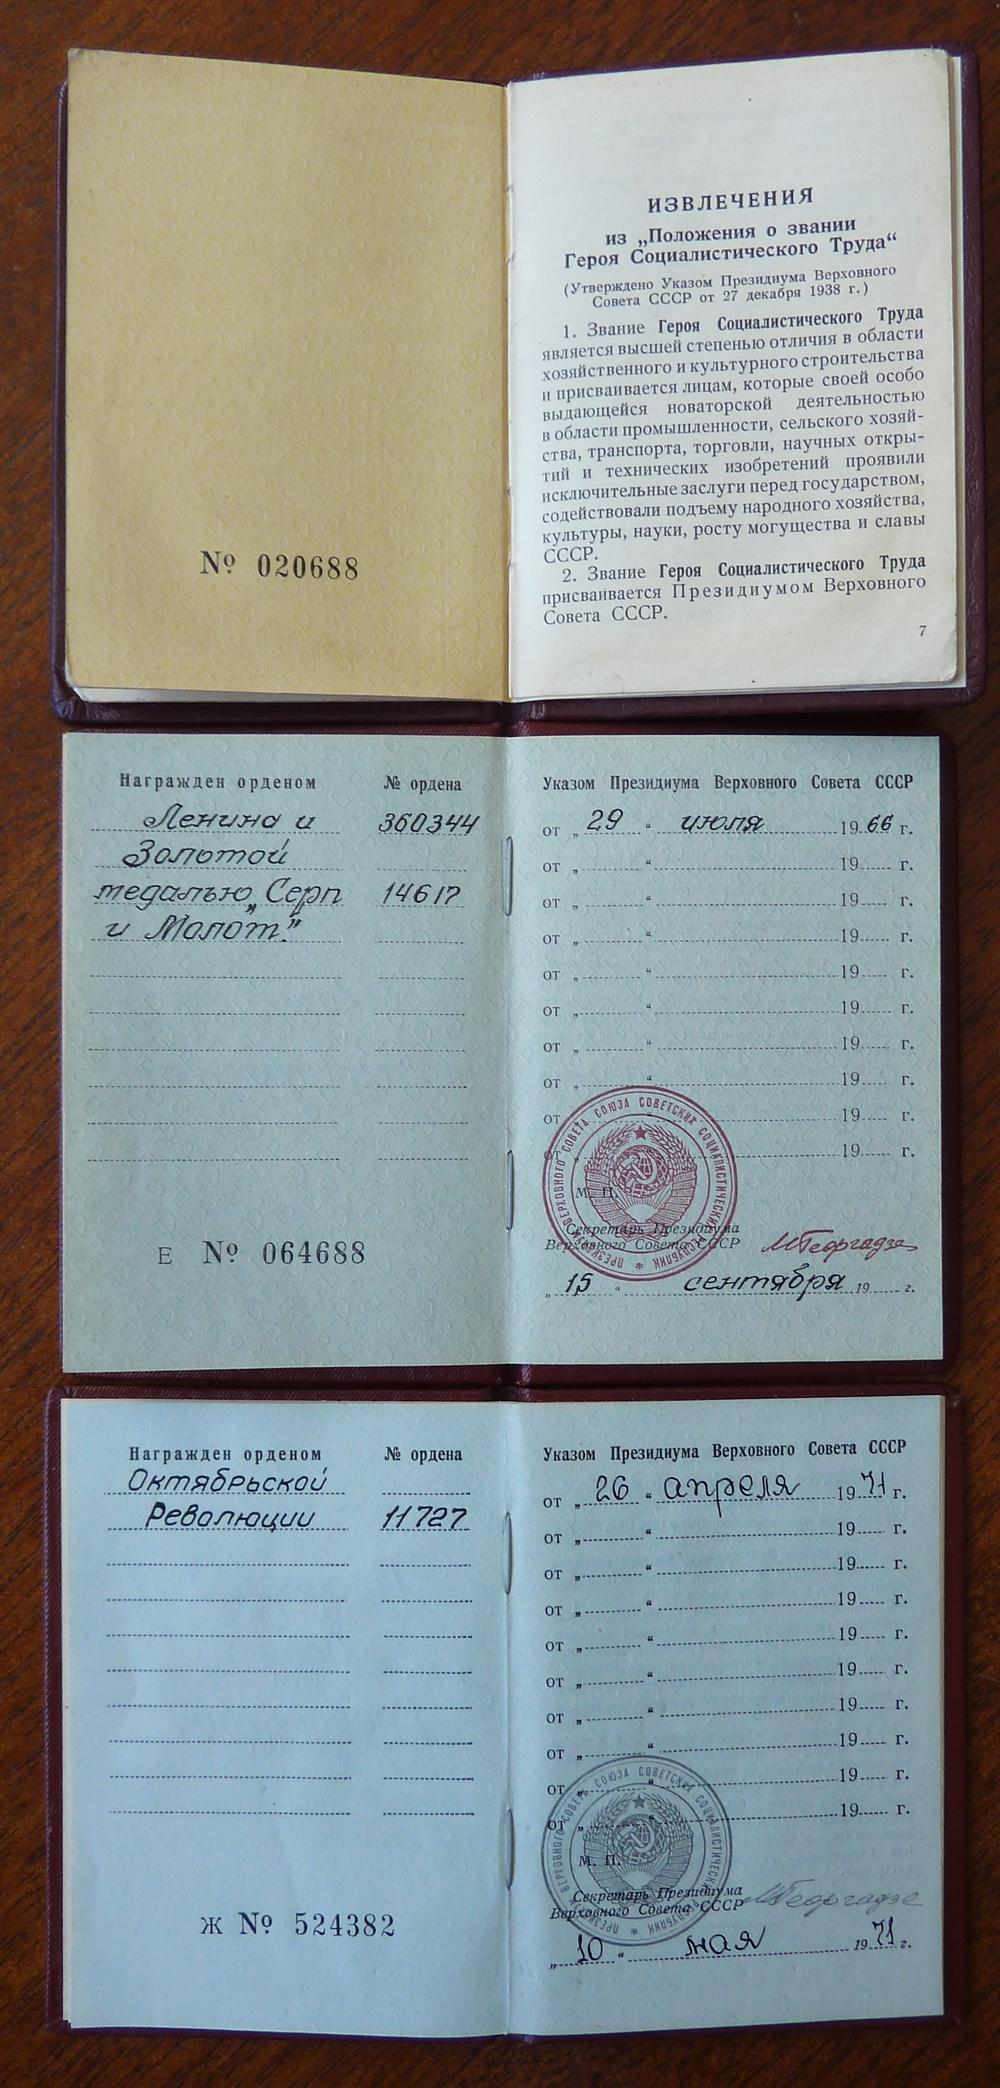 № 020688
ИЗВЛЕЧЕНИЯ
из „Положения о звании
Героя Социалистического Труда“
(Утверждено Указом Президиума Верховного
Совета СССР от 27 декабря 1938 г.)
1. Звание Героя Социалистического Труда
является высшей степенью отличия в области
хозяйственного и культурного строительства
и присваивается лицам, которые своей особо
выдающейся новаторской деятельностью
в области промышленности, сельского хозяй-
ства, транспорта, торговли, научных откры-
тий и технических изобретений проявили
исключительные заслуги перед государством,
содействовали подъему народного хозяйства,
культуры, науки, росту могущества и славы
СССР.
2. Звание Героя Социалистического Труда
присваивается Президиумом Верховного
Совета СССР.
7
Награжден орденом № ордена
Ленина и 360344
Золотой
медалью „Серп 14617
и Молот"
Е № 064688
Указом Президиума Верховного Совета СССР
от „29“ июля 1966 г.
от „ “ 19 г.
от „ “ 19 г.
от „ “ 19 г.
от „ “ 19 г.
от „ “ 19 г.
от „ “ 19 г.
от „ “ 19 г.
от „ “ 19 г.
от „ “ 19 г.
ПРЕЗИДИУМ ВЕРХОВНОГО СОВЕТА СОЮЗА СОВЕТСКИХ СОЦИАЛИСТИЧЕСКИХ РЕСПУБЛИК
М. П.
Секретарь Президиума
Верховного Совета СССР МГеоргадзе
„15“ сентября 19 г.
Награжден орденом № ордена
Октябрьской
Революции 11727
Ж № 524382
Указом Президиума Верховного Совета СССР
от „26“ апреля 1971 г.
от „ “ 19 г.
от „ “ 19 г.
от „ “ 19 г.
от „ “ 19 г.
от „ “ 19 г.
от „ “ 19 г.
от „ “ 19 г.
от „ “ 19 г.
от „ “ 19 г.
ПРЕЗИДИУМ ВЕРХОВНОГО СОВЕТА СОЮЗА СОВЕТСКИХ СОЦИАЛИСТИЧЕСКИХ РЕСПУБЛИК
М. П.
Секретарь Президиума
Верховного Совета СССР МГеоргадзе
„10“ мая 1971 г.